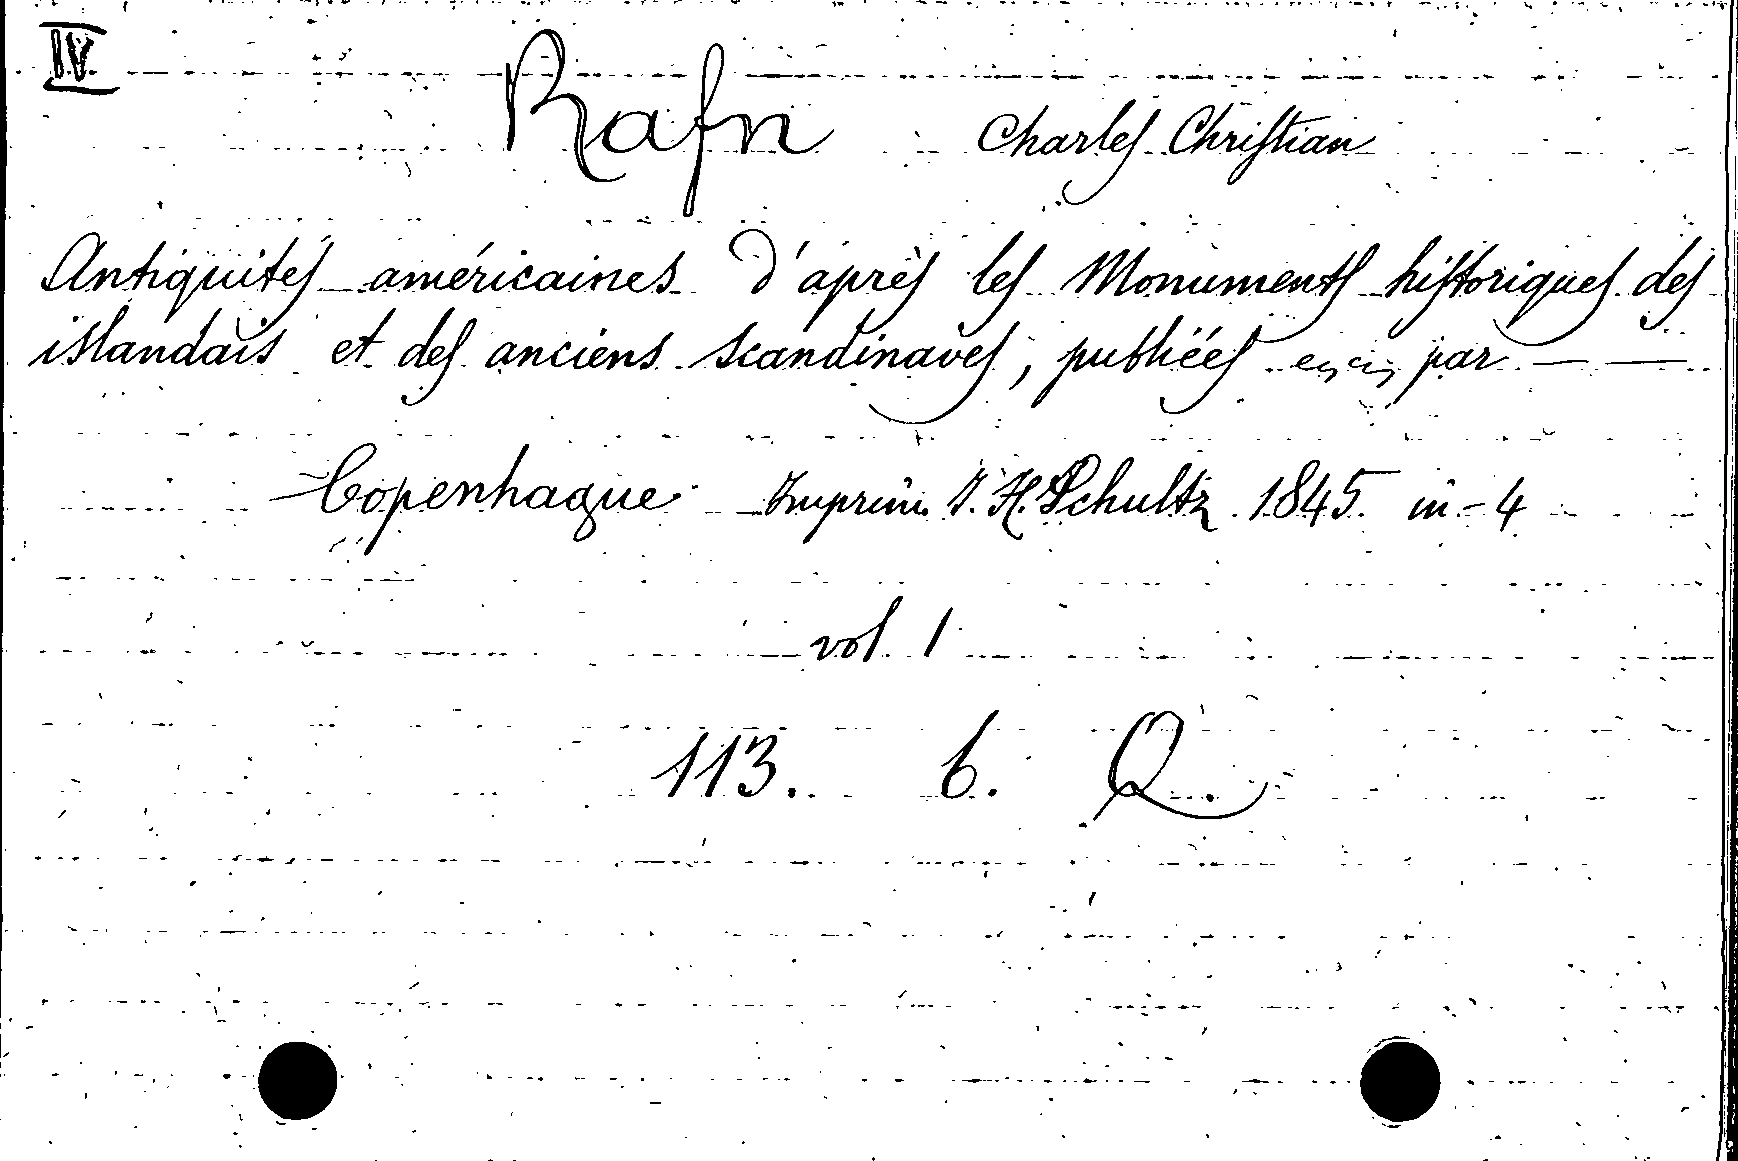 IV
Rafn Charles Christian
Antiquités américaines d'après les Monuments historiques des
islandais et des anciens scandinaves, publiées par — —
Copenhague Imprim. J. H. Schultz 1845 in-4
vol. 1
113. b. Q.